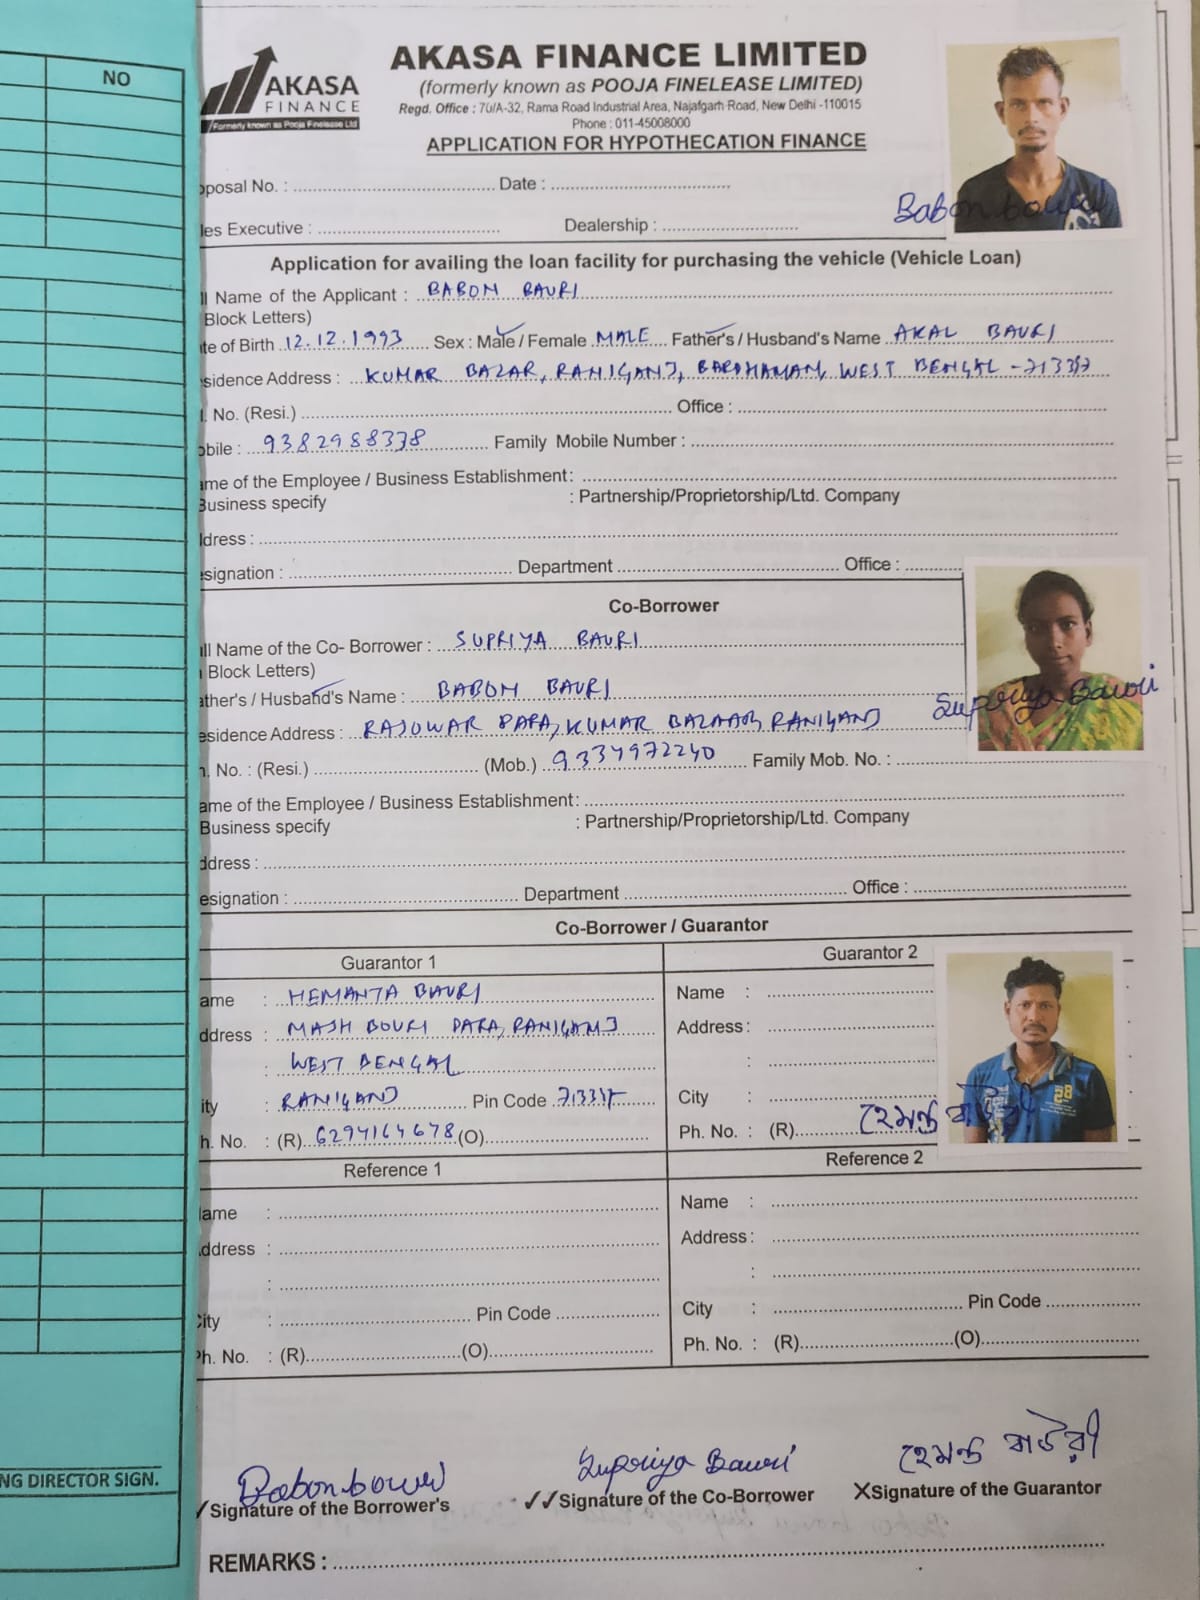 NO
AKASA
FINANCE
Formerly known as Pooja Finelease Ltd
AKASA FINANCE LIMITED
(formerly known as POOJA FINELEASE LIMITED)
Regd. Office : 70/A-32, Rama Road Industrial Area, Najafgarh Road, New Delhi -110015
Phone : 011-45008000
APPLICATION FOR HYPOTHECATION FINANCE
oposal No. : Date :
Babon bowri
les Executive : Dealership :
Application for availing the loan facility for purchasing the vehicle (Vehicle Loan)
ll Name of the Applicant : BABON BAURI
Block Letters)
te of Birth 12.12.1993 Sex : Male / Female MALE Father's / Husband's Name AKAL BAURI
sidence Address : KUMAR BAZAR, RANIGANJ, BARDHAMAN, WEST BENGAL -
l. No. (Resi.) Office :
obile : 9382988378 Family Mobile Number :
ame of the Employee / Business Establishment:
Business specify : Partnership/Proprietorship/Ltd. Company
ldress :
esignation : Department Office :
Co-Borrower
ıll Name of the Co- Borrower : SUPRIYA BAURI
Block Letters)
ather's / Husband's Name : BABON BAURI
Supriya Bauri
esidence Address : RAJOWAR PARA, KUMAR BAZAAR, RANIGANJ
h. No. : (Resi.) (Mob.) 9334972240 Family Mob. No. :
ame of the Employee / Business Establishment:
Business specify : Partnership/Proprietorship/Ltd. Company
ddress :
esignation : Department Office :
Co-Borrower / Guarantor
Guarantor 1 Guarantor 2
ame : HEMANTA BAURI Name :
ddress : MAJH BOURI PARA, RANIGANJ Address:
: WEST BENGAL :
ity : RANIGANJ Pin Code City :
h. No. : (R) 6294164678 (O) Ph. No. : (R) হেমন্ত বাউরী
Reference 1 Reference 2
lame : Name :
ddress : Address:
: :
City : Pin Code City : Pin Code
Ph. No. : (R) (O) Ph. No. : (R) (O)
NG DIRECTOR SIGN.
Babon bowri Supriya Bauri হেমন্ত বাউরী
✓Signature of the Borrower's ✓✓Signature of the Co-Borrower XSignature of the Guarantor
REMARKS :